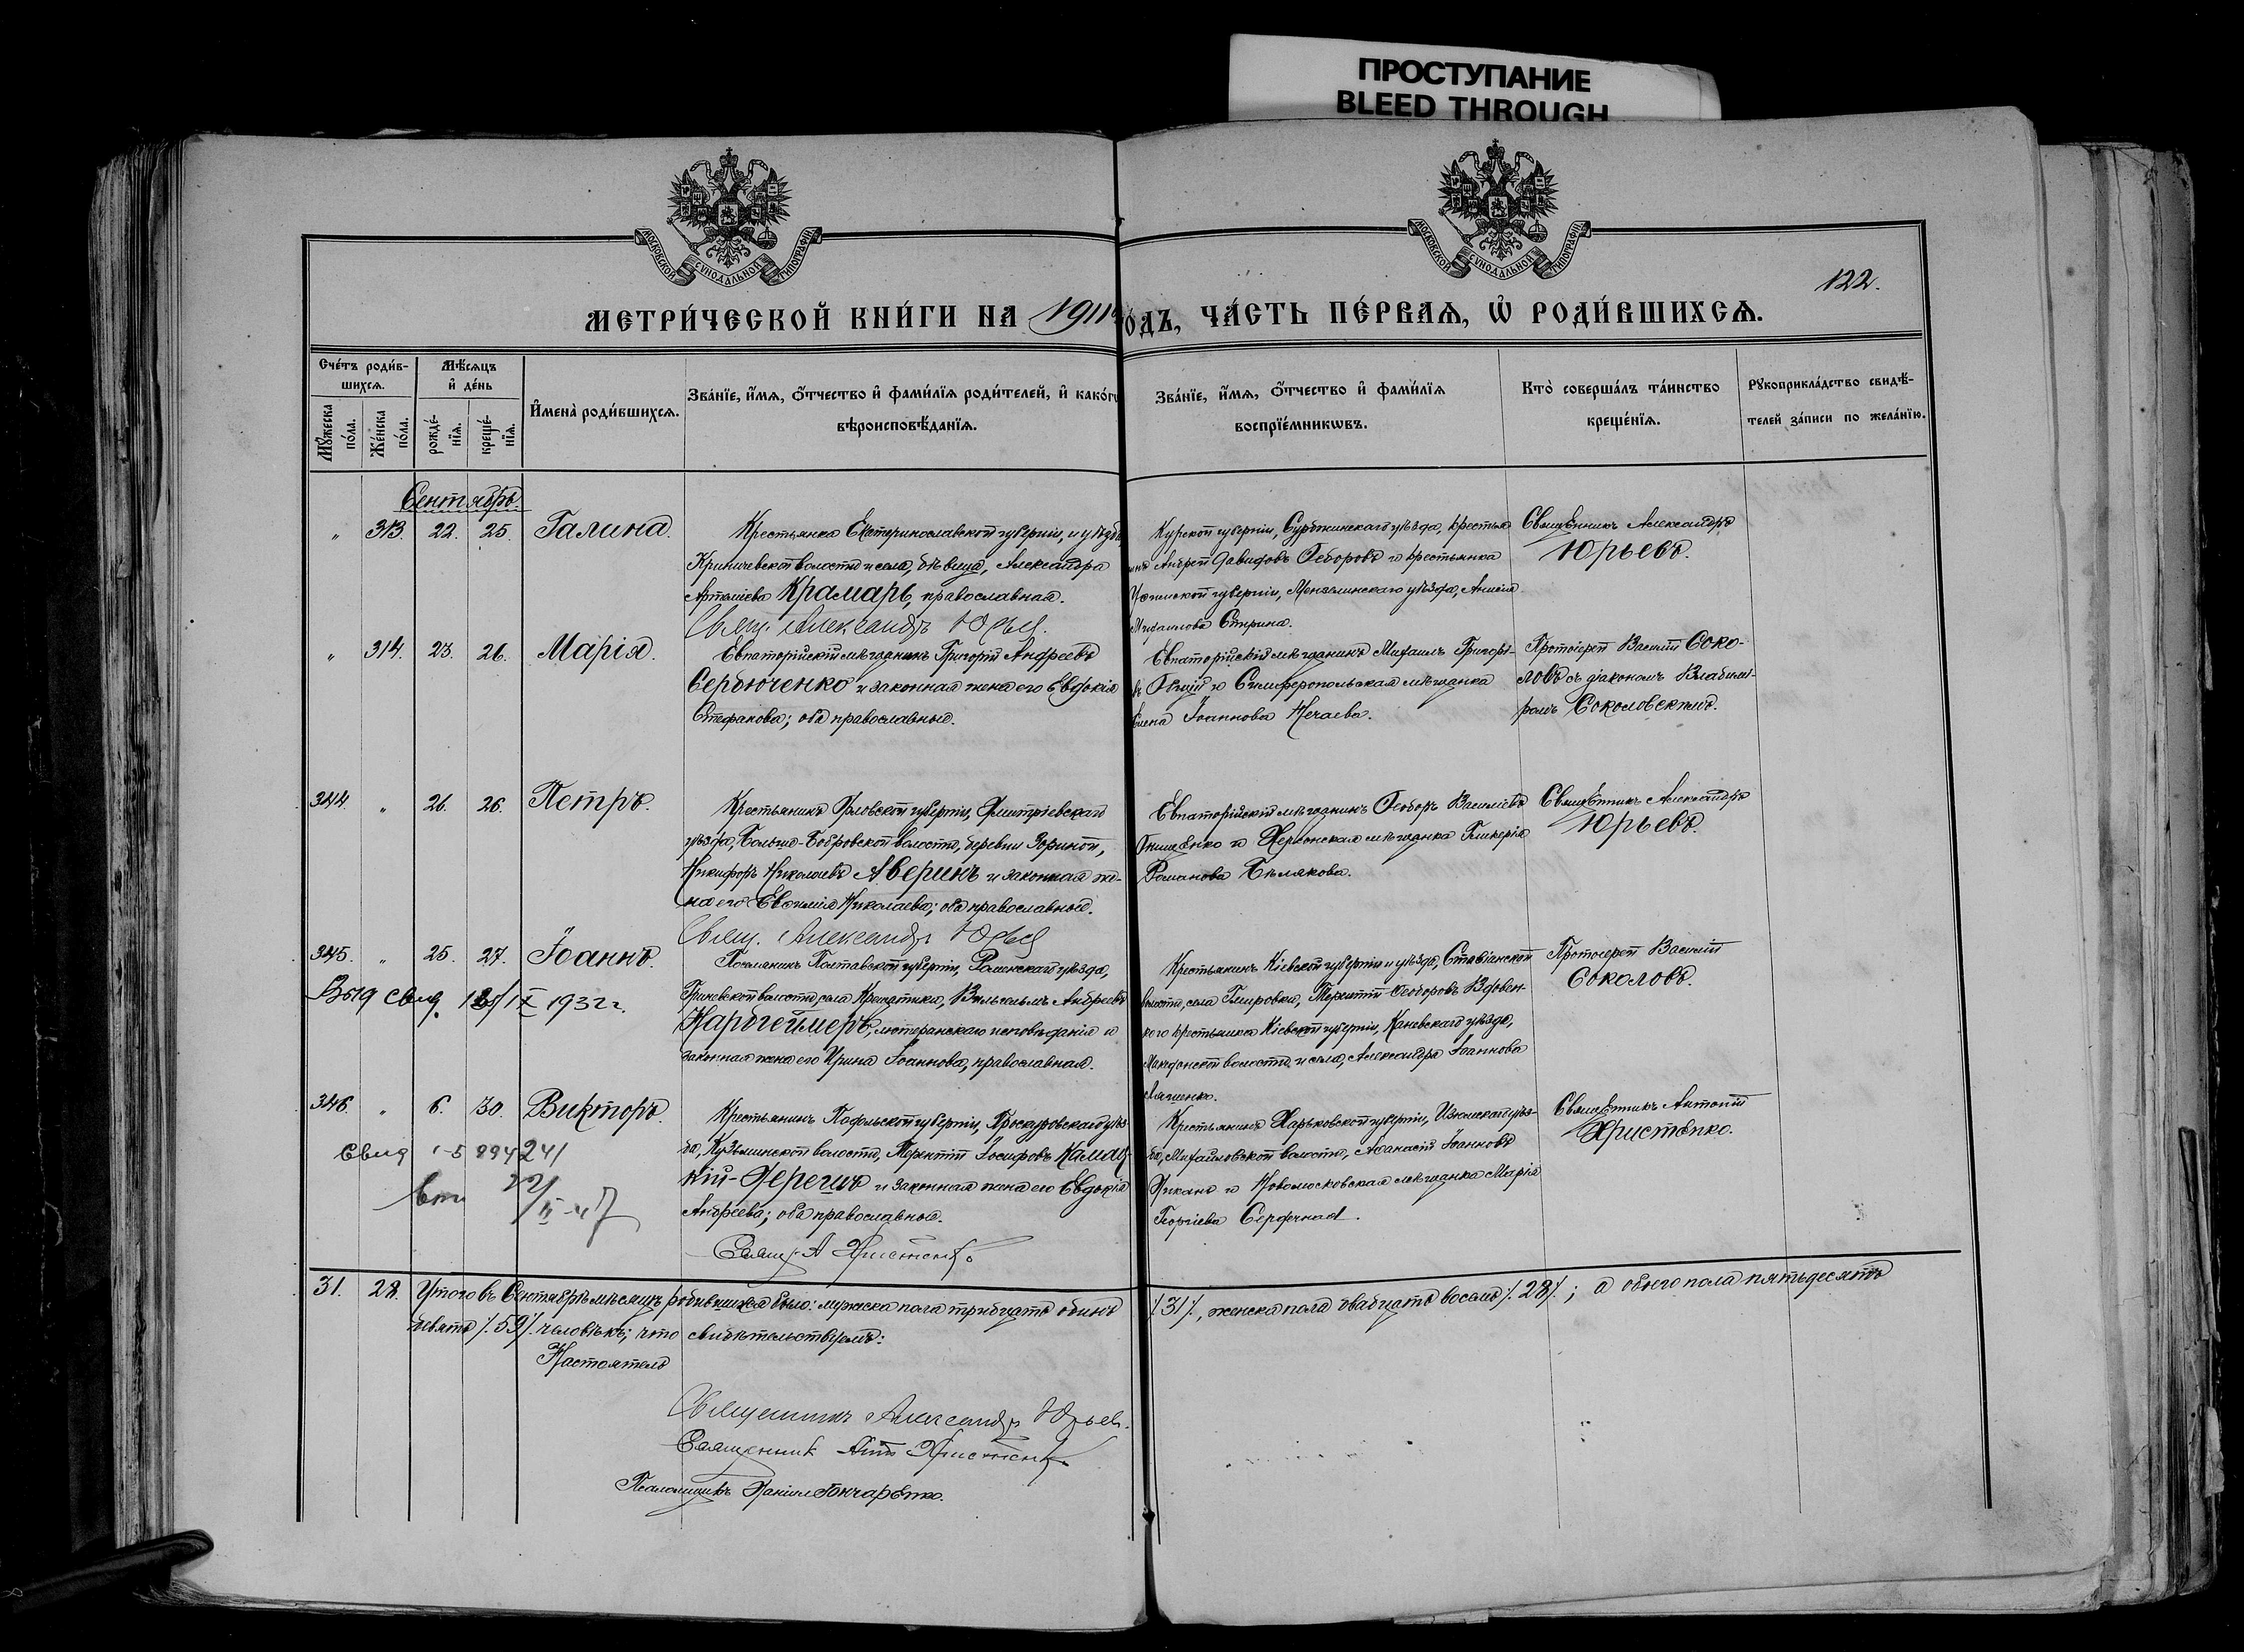 ПРОСТУПАНИЕ
BLEED THROUGH
МОСКОВСКОЙ СѴНОДАЛЬНОЙ ТИПОГРАФІИ
МОСКОВСКОЙ СѴНОДАЛЬНОЙ ТИПОГРАФІИ
122.
МЕТРИ́ЧЕСКОЙ КНИ́ГИ НА 1911 го́дъ, ЧА́СТЬ ПЕ́РВАѦ, Ѽ РОДИ́ВШИХСѦ.
Сче́тъ роди́вшихсѧ.
Мꙋ́жеска по́ла.
Же́нска по́ла.
Мѣ́сѧцъ и҆ де́нь
рожде́нїѧ.
креще́нїѧ.
И҆мена̀ роди́вшихсѧ.
Зва́нїе, и҆́мѧ, ѻ҆́тчество и҆ фами́лїѧ роди́телей, и҆ како́гѡ
вѣроисповѣ́данїѧ.
Зва́нїе, и҆́мѧ, ѻ҆́тчество и҆ фами́лїѧ
воспрїе́мникѡвъ.
Кто̀ соверша́лъ та́инство
креще́нїѧ.
Рꙋкоприкла́дство свидѣ́-
телей за́писи по жела́нїю.
Сентябрь.
" 313. 22. 25. Галина.
Крестьянка Екатеринославской губерніи, и уѣзда,
Криничевской волости и села, дѣвица, Александра
Артеміева Крамарь, православная.
Свящ. Александръ Юрьев
Курской губерніи, уѣзда, крестья-
нинъ Андрей Давидовъ Ѳеодоровъ и крестьянка
Уфимской губерніи, Мензелинскаго уѣзда, Анисія
Михаилова
Священникъ Александръ
Юрьевъ.
" 314. 23. 26. Марія.
Евпаторійскій мѣщанинъ Григорій Андреевъ
Сердюченко и законная жена его Евдокія
Стефанова; оба православные.
Евпаторійскій мѣщанинъ Михаилъ Григорі-
и Симферопольская мѣщанка
Елена Іоаннова Нечаева.
Протоіерей Василій Соко-
ловъ съ діакономъ Владимі-
ромъ Соколовскимъ.
344. " 26. 26. Петръ.
Крестьянинъ Орловской губерніи, Дмитріевскаго
уѣзда, Больше-Бобровской волости, деревни Зориной,
Никифоръ Николаевъ Аверинъ и законная же-
на его Евѳимія Николаева; оба православные.
Свящ. Александръ Юрьев
Евпаторійскій мѣщанинъ Ѳеодоръ Василіевъ
Онищенко и Херсонская мѣщанка Гликерія
Романова Бѣлякова.
Священникъ Александръ
Юрьевъ.
345. " 25. 27. Іоаннъ.
Поселянинъ Полтавской губерніи, Роменскаго уѣзда,
волости, села Вильгельмъ Андреевъ
Нардгеймеръ, лютеранскаго исповѣданія и
законная жена его Ирина Іоаннова, православная.
Крестьянинъ Кіевской губерніи и уѣзда,
волости, села Терентій Ѳеодоровъ Вдовен-
ко и крестьянка Кіевской губерніи, Каневскаго уѣзда,
волости и села, Александра Іоаннова
Протоіерей Василій
Соколовъ.
свид. IX 1932 г.
346. " 6. 30. Викторъ.
Крестьянинъ Подольской губерніи, Проскуровскаго уѣз-
да, Кузьминской волости, Терентій Іосифовъ
и законная жена его Евдокія
Андреева; оба православные.
Свящ. А Христенко
Крестьянинъ Харьковской губерніи, Изюмскаго уѣз-
да, Михайловской волости, Аѳанасій Іоанновъ
и Новомосковская мѣщанка Марія
Георгіева
Священникъ Антоній
Христенко.
Свид
31. 28. Итого въ Сентябрѣ мѣсяцѣ родившихся было: мужеска пола тридцать одинъ
/.31/., женска пола двадцать восемь /.28/.; а обоего пола пятьдесятъ
девять /.59/. человѣкъ; что свидѣтельствуемъ:
Настоятель
Священникъ Александръ Юрьев.
Священник Ант Христенко
Псаломщикъ Даніилъ Гончаренко.